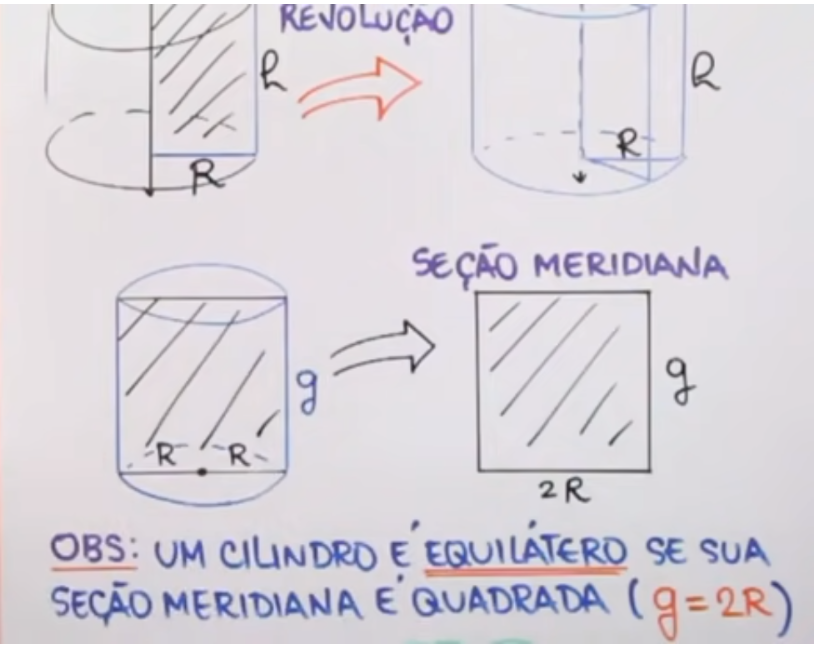 REVOLUÇÃO
h
h
R
R
SEÇÃO MERIDIANA
g
g
R R
2R
OBS: UM CILINDRO É EQUILÁTERO SE SUA
SEÇÃO MERIDIANA É QUADRADA (g=2R)